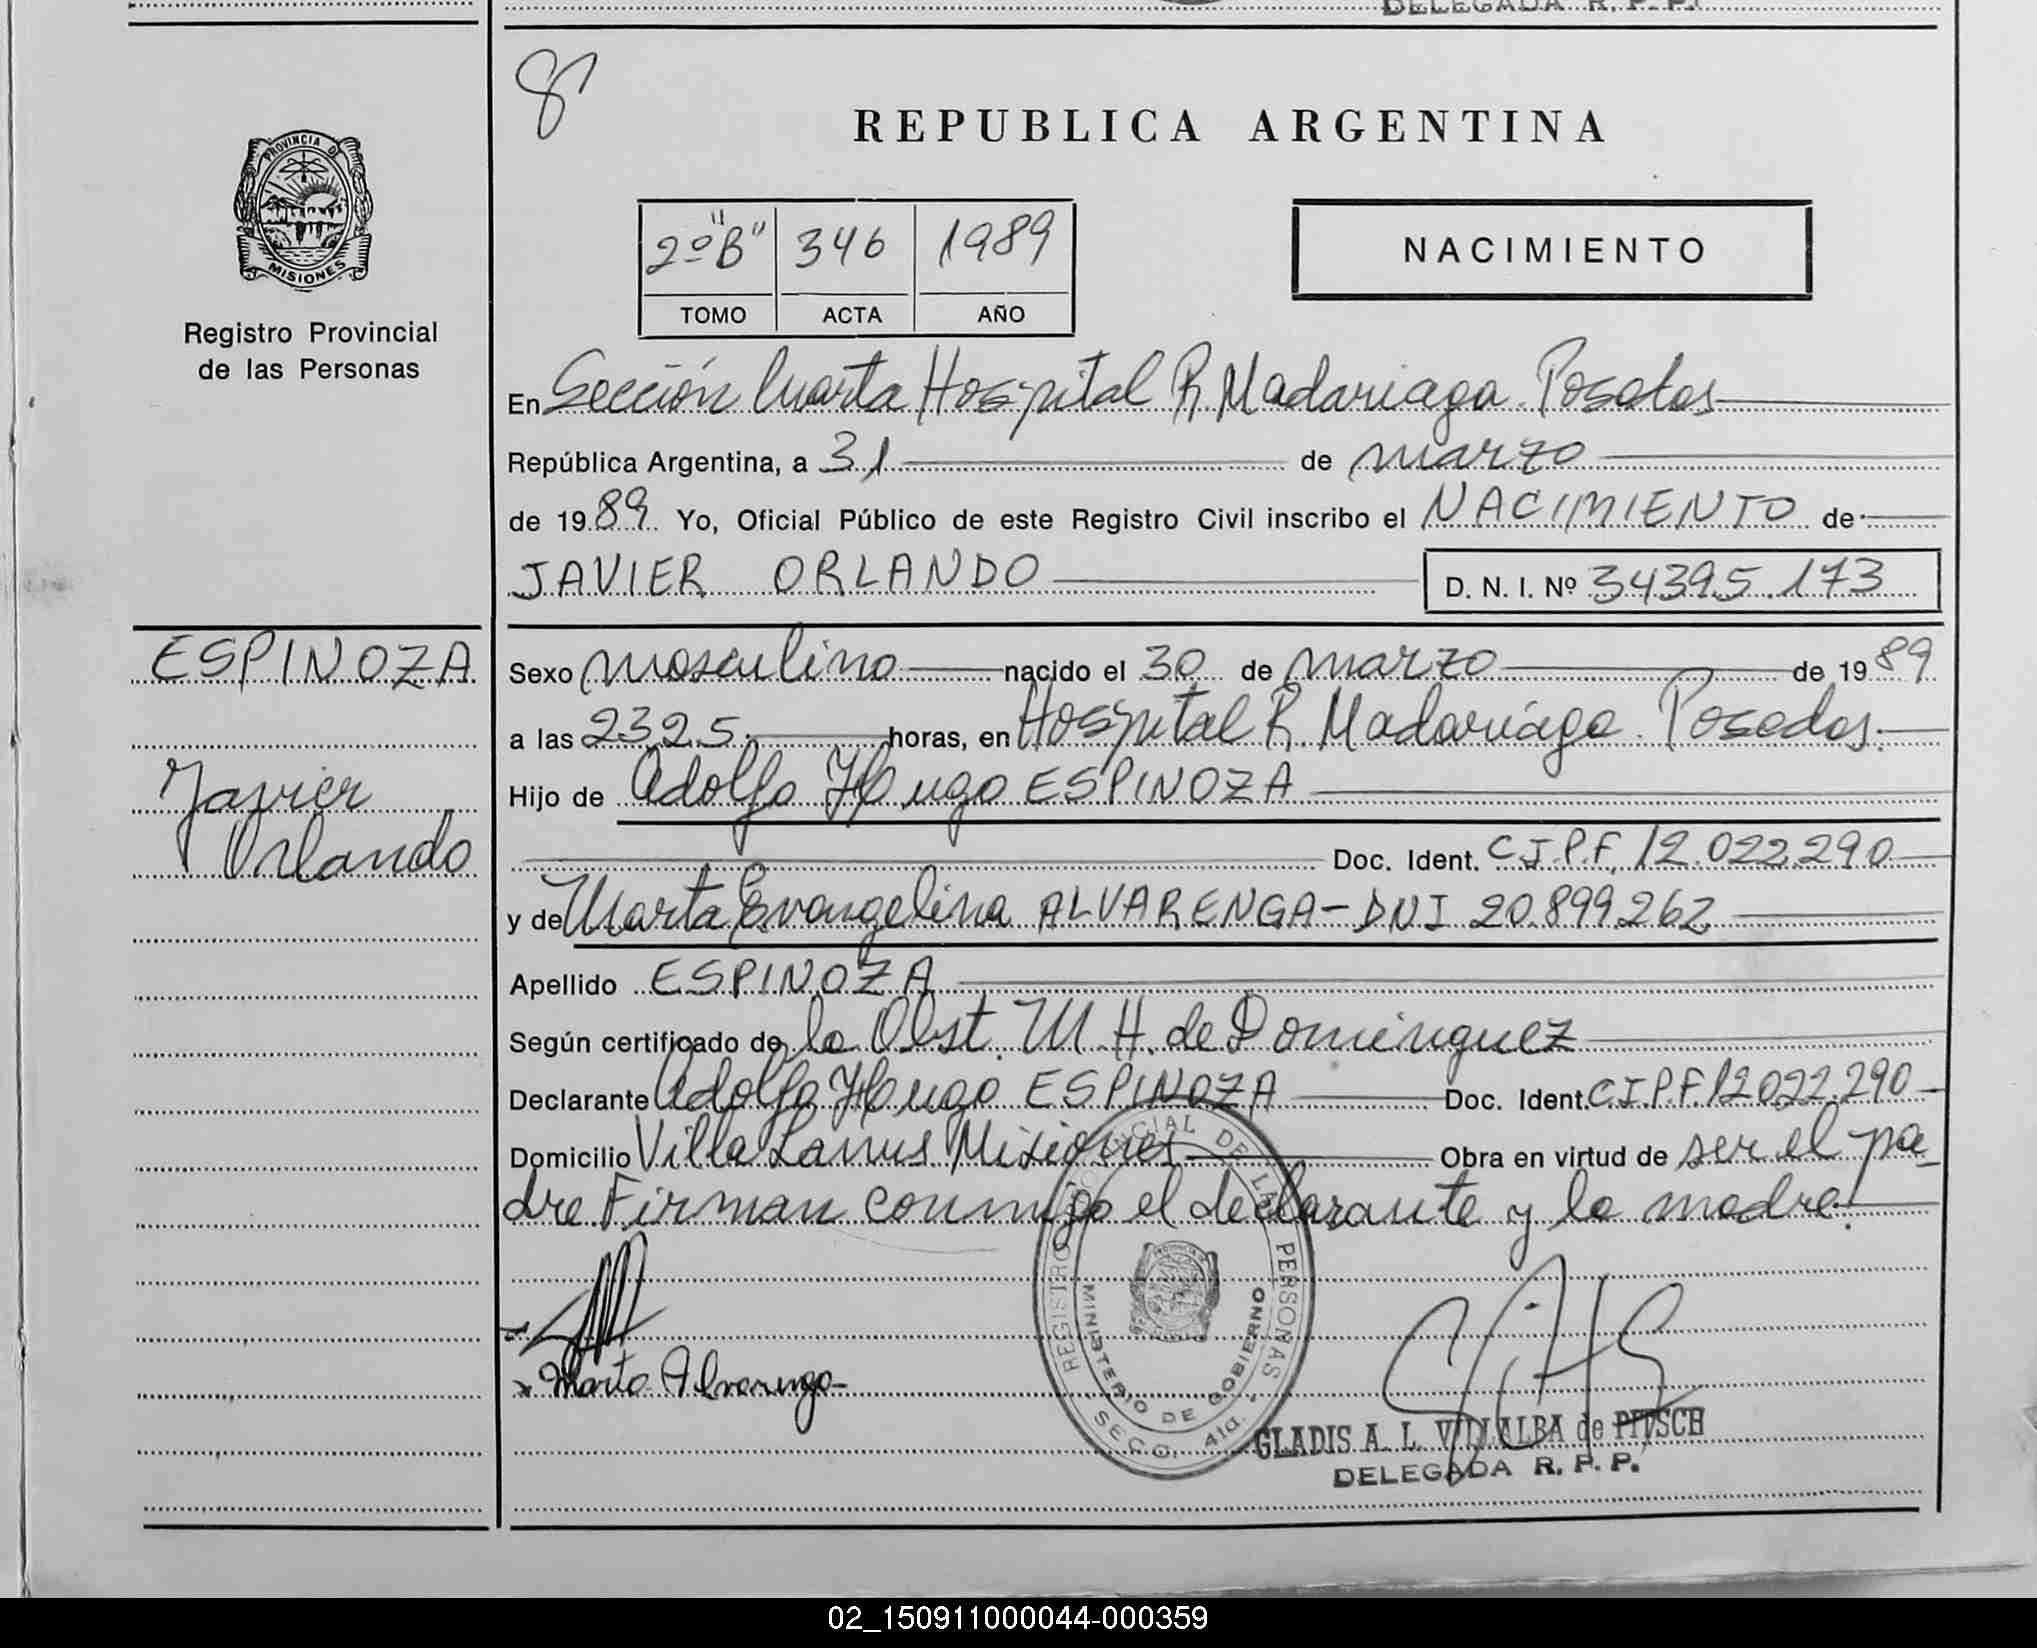 DELEGADA R. P. P.
8
PROVINCIA D
MISIONES
Registro Provincial
de las Personas
REPUBLICA ARGENTINA
2º "B" 346 1989
TOMO ACTA AÑO
NACIMIENTO
En Sección Cuarta Hospital R. Madariaga. Posadas
República Argentina, a 31 de marzo
de 1989. Yo, Oficial Público de este Registro Civil inscribo el NACIMIENTO de
JAVIER ORLANDO D. N. I. Nº 34395.173
ESPINOZA
Javier
Orlando
Sexo masculino nacido el 30 de marzo de 1989
a las 23,25. horas, en Hospital R. Madariaga. Posadas.
Hijo de Adolfo Hugo ESPINOZA
Doc. Ident. C.I.P.F. 12.022.290
y de Marta Evangelina ALVARENGA - DNI 20.899.262
Apellido ESPINOZA
Según certificado de la Obst. M. H. de Domínguez
Declarante Adolfo Hugo ESPINOZA Doc. Ident. C.I.P.F. 12.022.290
Domicilio Villa Lanus Misiones Obra en virtud de ser el pa-
dre. Firman conmigo el declarante y la madre.
Marta Alvarenga
REGISTRO PROVINCIAL DE LAS PERSONAS
MINISTERIO DE GOBIERNO
SECC. 4ta.
GLADIS A. L. VILLALBA de PITSCH
DELEGADA R. P. P.
02_150911000044-000359